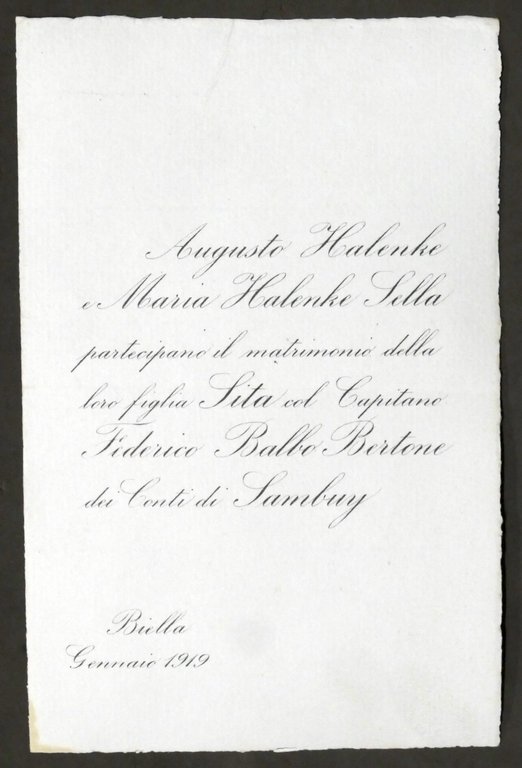 Augusto Halenke
e Maria Halenke Sella
partecipano il matrimonio della
loro figlia Sita col Capitano
Federico Balbo Bertone
dei Conti di Sambuy
Biella
Gennaio 1919